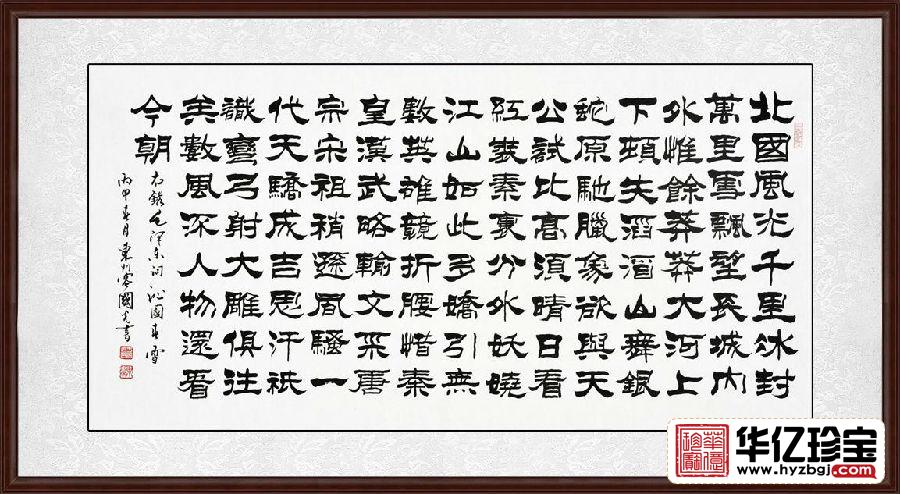 北國風光千里冰封
萬里雪飄望長城內
外惟餘莽莽大河上
下頓失滔滔山舞銀
蛇原馳臘象欲與天
公試比高須晴日看
紅裝素裹分外妖嬈
江山如此多嬌引無
數英雄競折腰惜秦
皇漢武略輸文采唐
宗宋祖稍遜風騷一
代天驕成吉思汗祇
識彎弓射大雕俱往
矣數風流人物還看
今朝
右錄毛澤東詞沁園春雪
丙申春月國光書
華億珍寶
华亿珍宝
www.hyzbgj.com